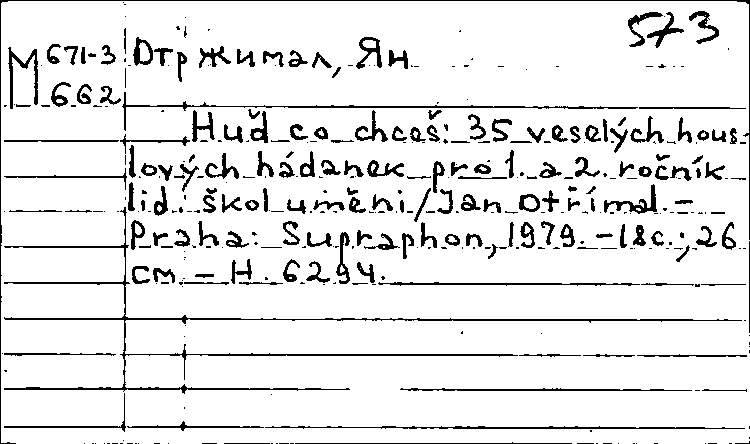 573
М 671-3
662
Dтржимал, Ян
Huď co chceš: 35 veselých hous-
lových hádanek pro 1. a 2. ročník
lid. škol uměni / Jan Dtřímal. –
Praha: Supraphon, 1979. – 18 c.; 26
см – H. 6294.